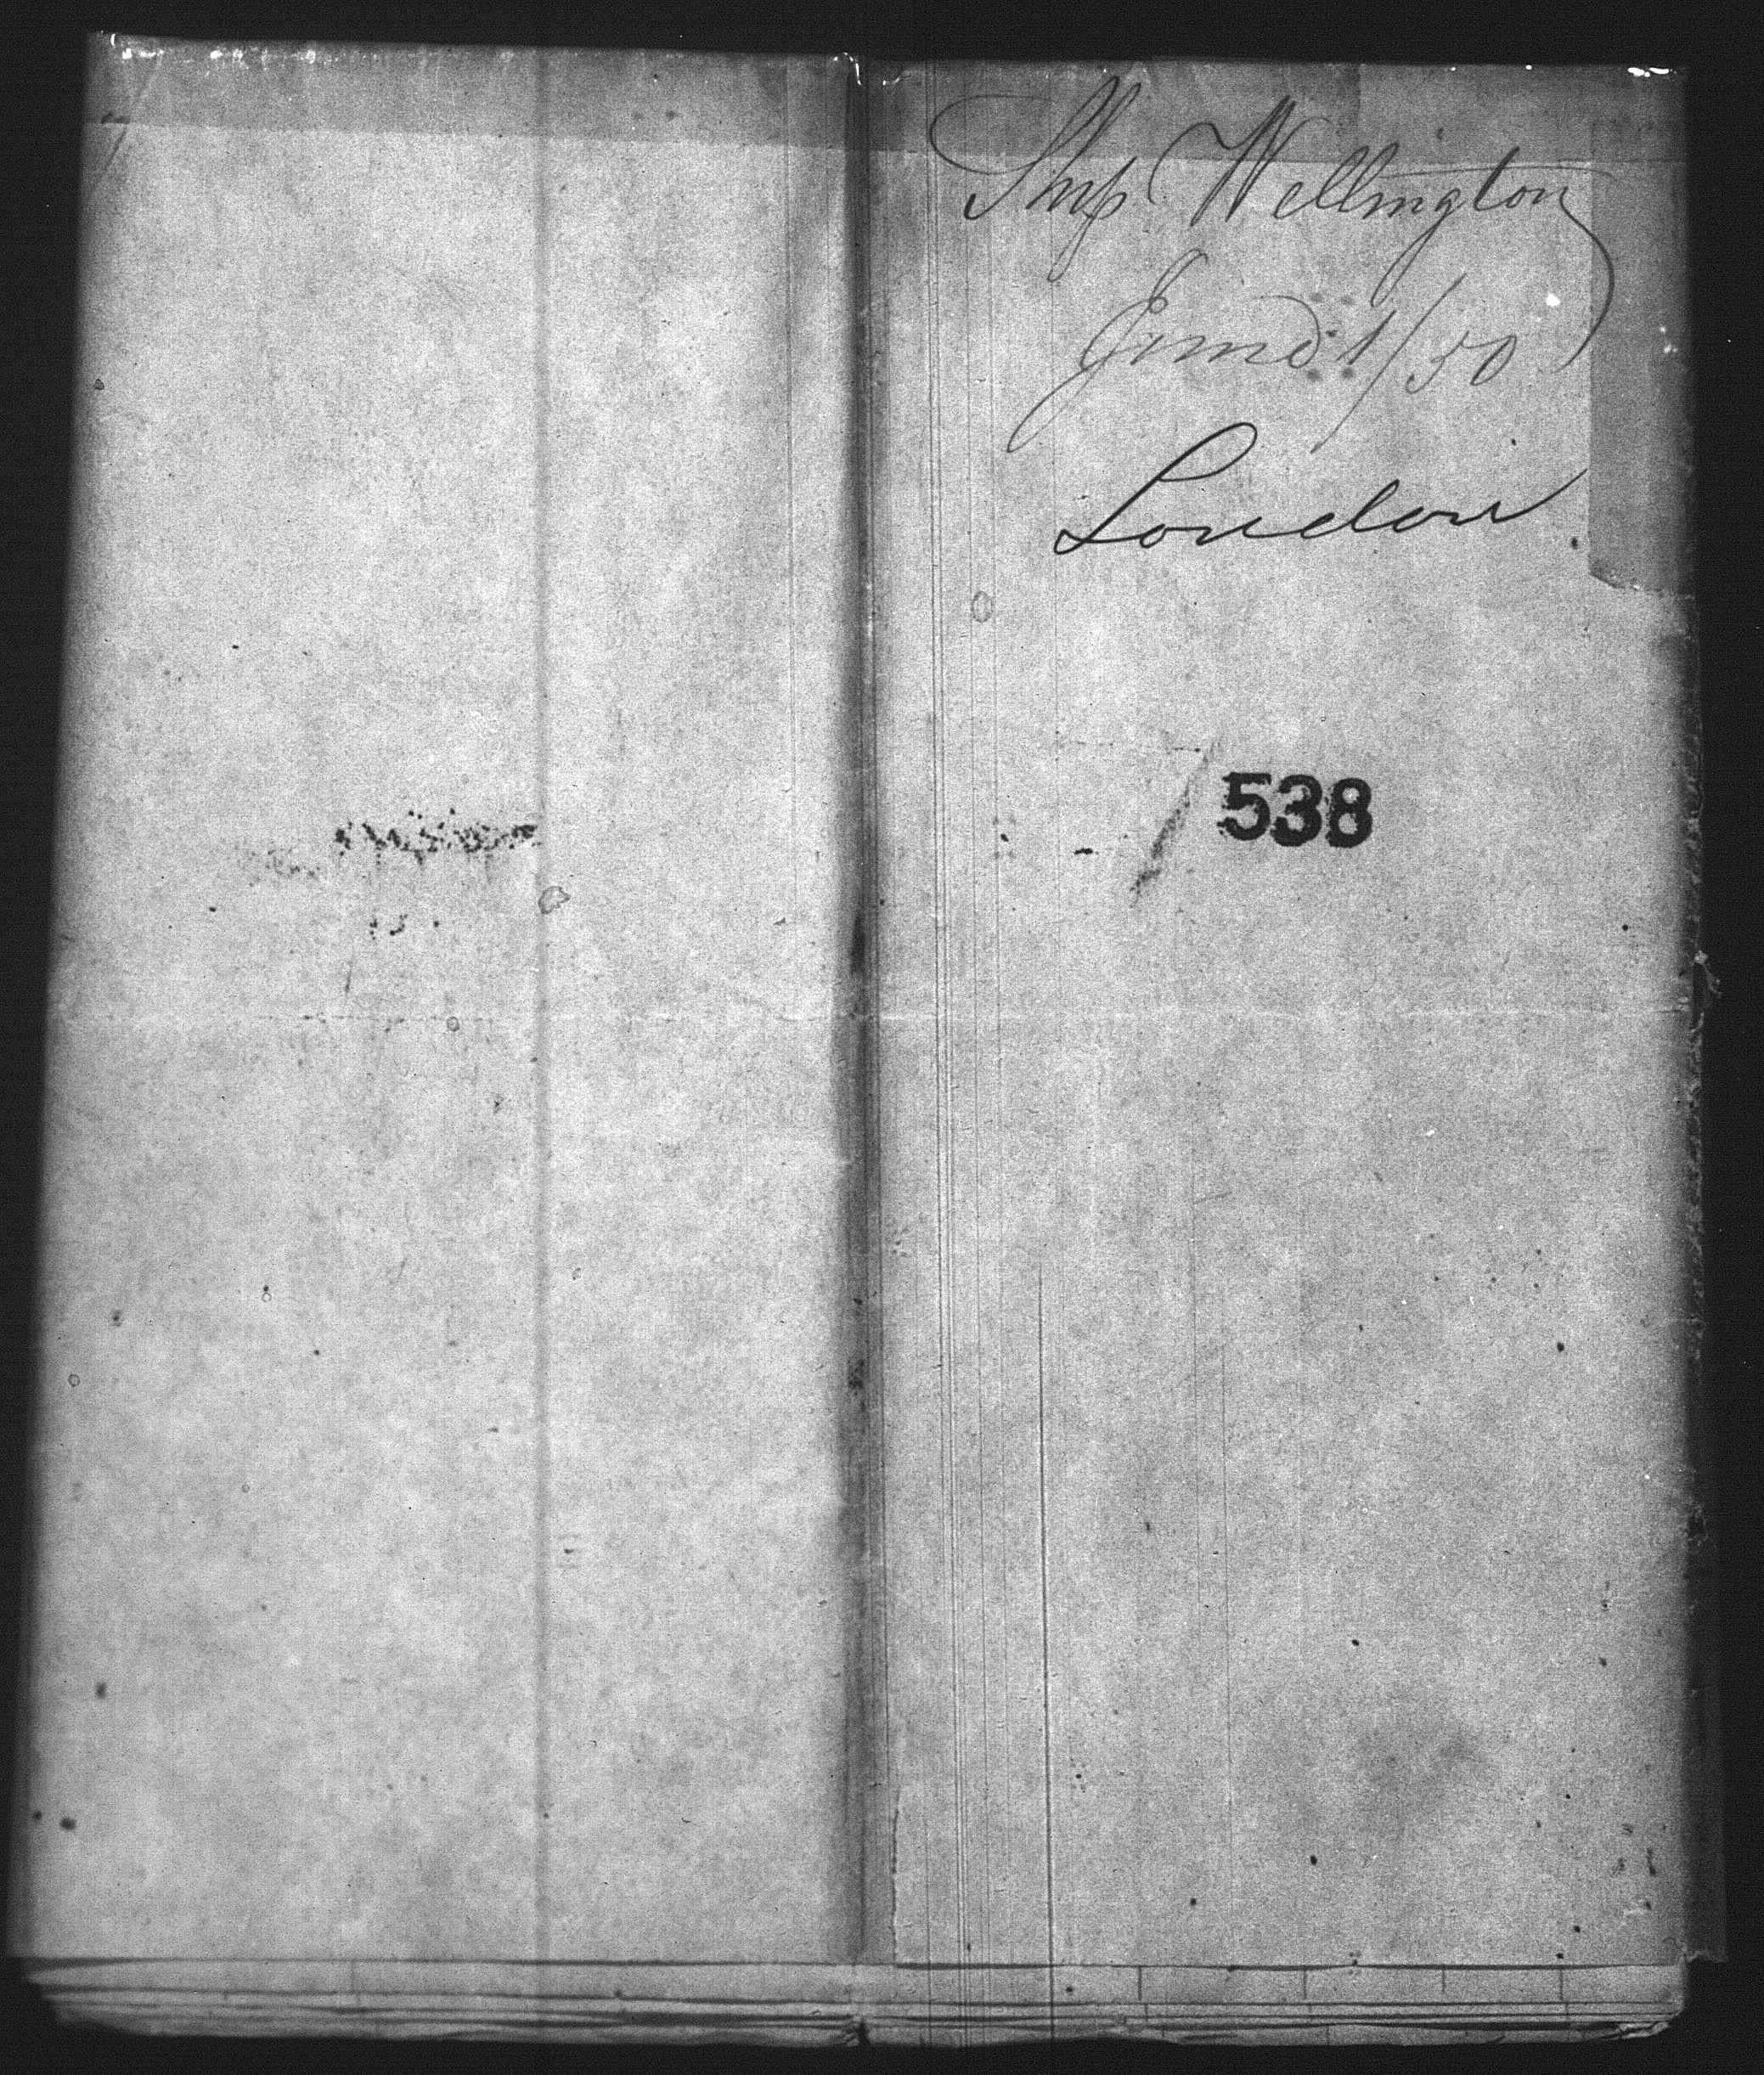 Ship Wellington
June 1/50
London
538